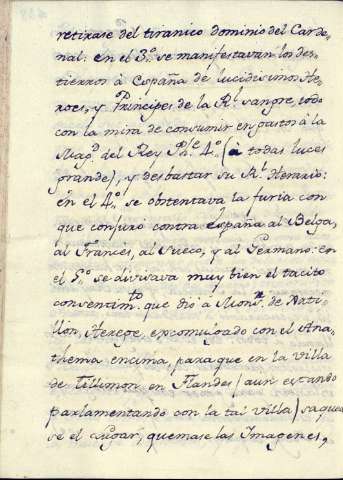 retirase del tiranico dominio del Carde-
nal: en el 3.º se manifestavan los des-
tierros à España de lucidisimos He-
roes, y Principes de la R.l sangre, todo
con la mira de consumir en gastos à la
Mag.d del Rey Ph.e 4.º (à todas luces
grande), y desbastar su R.l Herario:
en el 4.º se obtentava la furia con
que conjuró contra España al Belga,
al Francés, al Sueco, y al Germano: en
el 5.º se divisava muy bien el tacito
consentim.to que dió à Mons.r de Xati-
llón, Herege, excomulgado con el Ana-
thema encima, para que en la villa
de Tillimon en Flandes (aun estando
parlamentando con la tal villa) saquea-
se el Lugar, quemase las Imagenes,